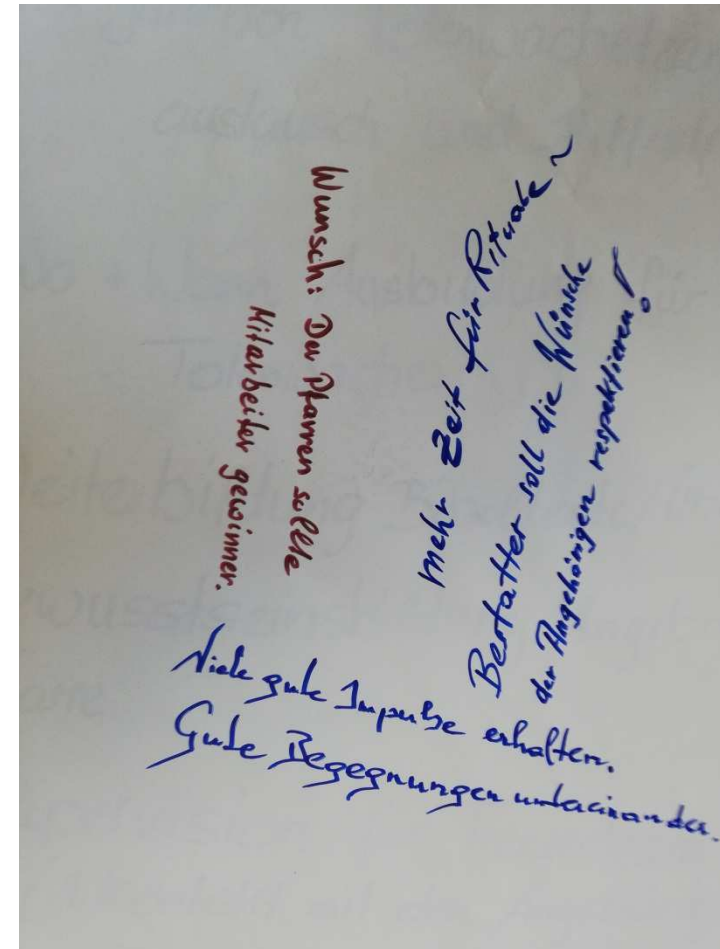 Wunsch: Der Pfarrer sollte
Mitarbeiter gewinnen.
mehr Zeit für Rituale ~
Bestatter soll die Wünsche
der Angehörigen respektieren!
Viele gute Impulse erhalten.
Gute Begegnungen untereinander.